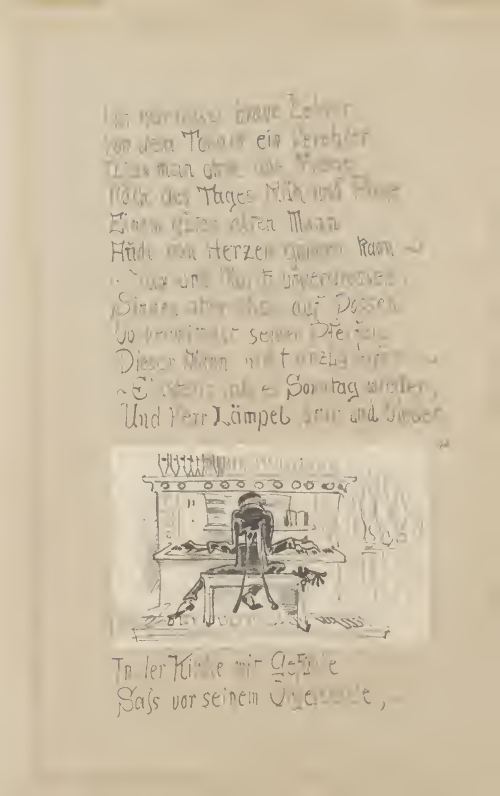 brave Lehrer
von dem Toback ein Verehrer
Was man ohne alle Frage
Nach des Tages Müh und Plage
Einem guten alten Mann
Auch von Herzen gönnen kann –
unverdrossen
Sinnen aber schon auf Possen
Ob vermittelst seiner Pfeifen
Dieser Mann nicht anzugreifen –
– Sonntag wieder,
Und Herr Lämpel brav und bieder
In der Kirche mit Gefühle
Sass vor seinem Orgelspiele, –